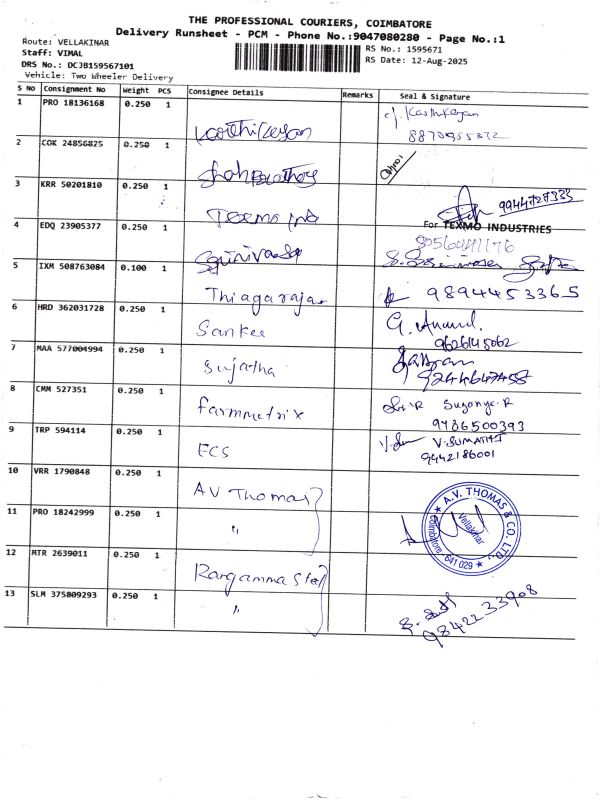 THE PROFESSIONAL COURIERS, COIMBATORE
Delivery Runsheet - PCM - Phone No.:9047080280 - Page No.:1
Route: VELLAKINAR
Staff: VIMAL
DRS No.: DCJB159567101
Vehicle: Two Wheeler Delivery
RS No.: 1595671
RS Date: 12-Aug-2025
S No Consignment No Weight PCS Consignee Details Remarks Seal & Signature
1 PRO 18136168 0.250 1 Karthikeyan Karthikeyan
2 COK 24856825 0.250 1
3 KRR 50201810 0.250 1 Texmo Ind 9944727333
For TEXMO INDUSTRIES
4 EDQ 23905377 0.250 1 Srinivasa
5 IXM 508763084 0.100 1 Thiagarajan 9894453365
6 HRD 362031728 0.250 1 Sankee G. Anand.
9626145062
7 MAA 577004994 0.250 1 Sujatha
9244647458
8 CMM 527351 0.250 1 Farmmetrix Suganya.R
9786500393
9 TRP 594114 0.250 1 ECS V.SUMATHI
9442186001
10 VRR 1790848 0.250 1 AV Thomas
11 PRO 18242999 0.250 1 "
A.V. THOMAS & CO. LTD.
Vellakinar
Coimbatore 641 029
12 MTR 2639011 0.250 1 Rangamma Steel
13 SLM 375809293 0.250 1 "
9842233908